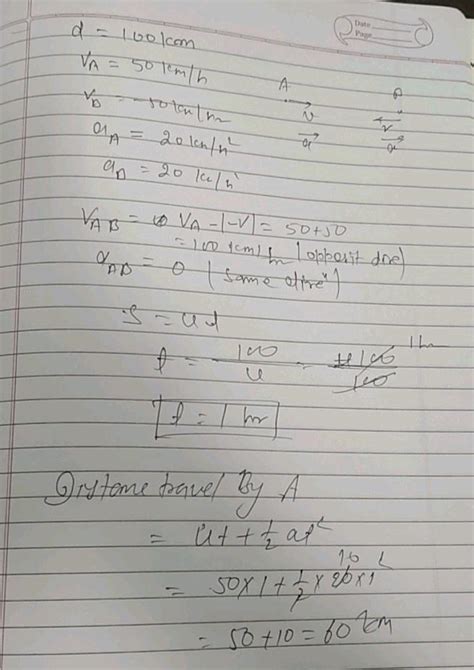 Date
Page
d = 100 km
V_A = 50 km/h
A
V_B = -50 km/h
v
v
a_A = 20 km/h²
a
a
a_B = 20 km/h²
V_AB = V_A - |-V| = 50+50
= 100 km/h (opposit dre)
a_AB = 0 (same dirⁿ)
S = ut
t = 100/u = 100/100 1 hr
t = 1 hr
Distance travel By A
= ut + 1/2 at²
= 50×1 + 1/2 × 20 × 1² 10
= 50 + 10 = 60 km